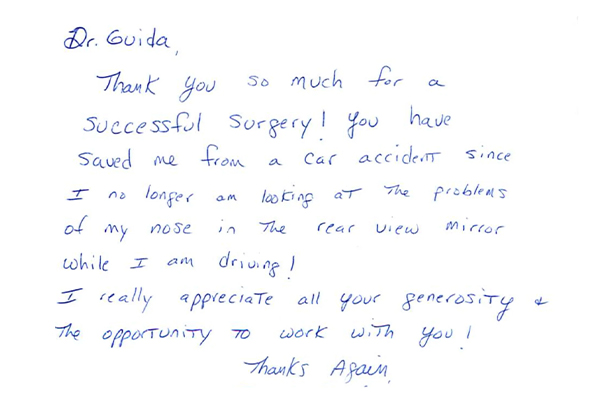 Dr. Guida,
Thank you so much for a
successful surgery! You have
saved me from a car accident since
I no longer am looking at the problems
of my nose in the rear view mirror
while I am driving!
I really appreciate all your generosity &
the opportunity to work with you!
Thanks Again,